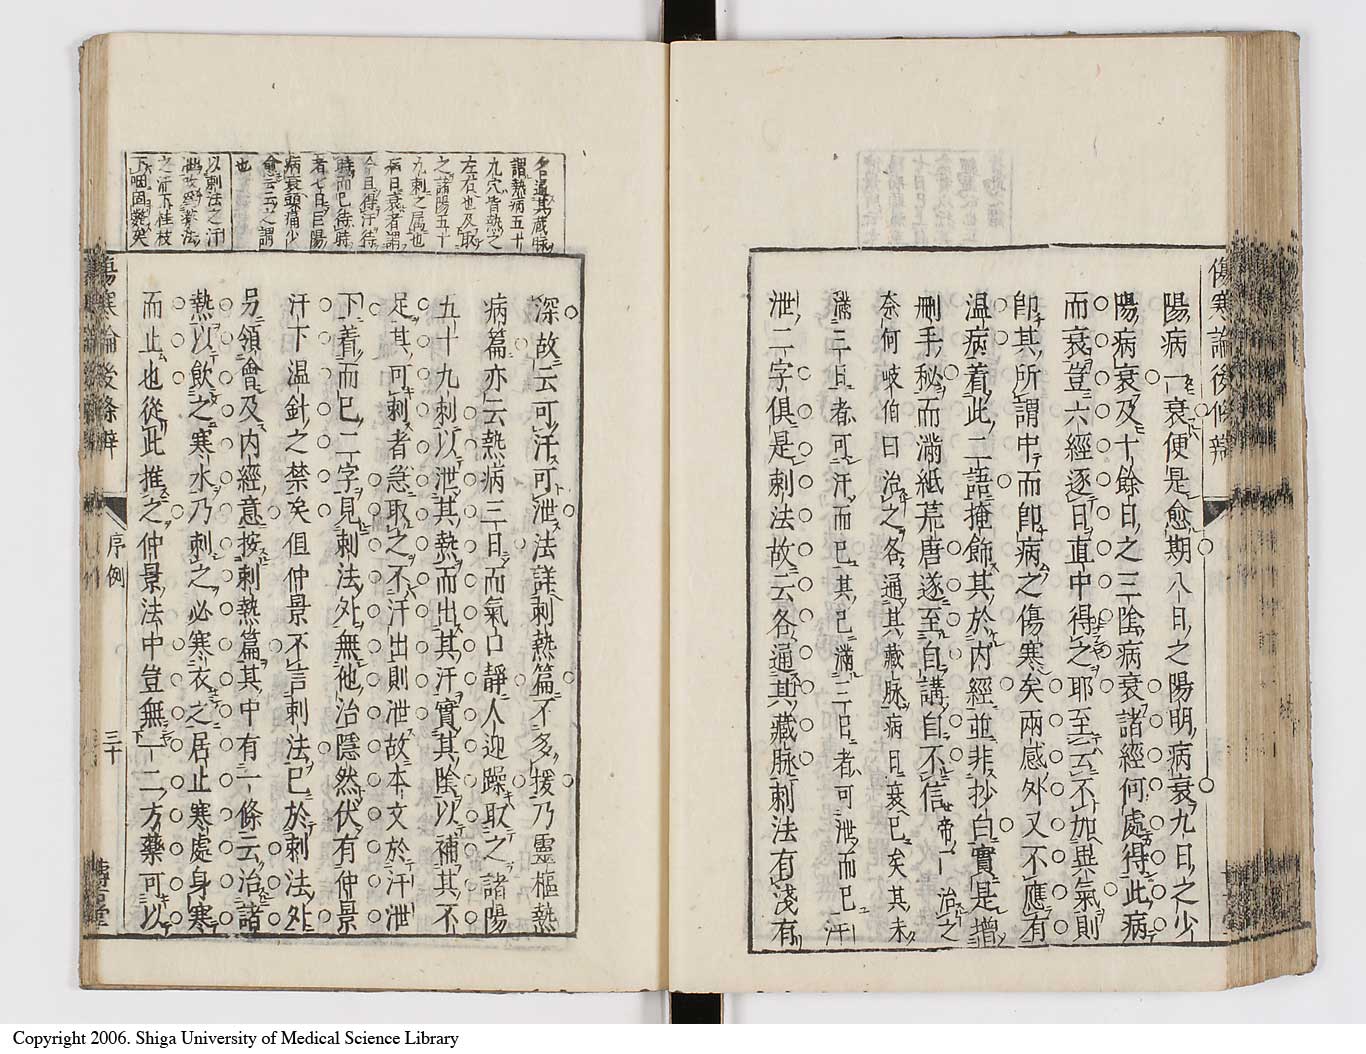 傷寒論後條辨
陽病一衰便是愈期八日之陽明病衰九日之少
陽病衰及十餘日之三陰病衰諸經何處得此病
而衰豈六經逐日直中得之耶至云不加異氣則
即其所謂中而即病之傷寒矣兩感外又不應有
温病着此二語掩飾其於内經並非抄白實是增
刪手秘而滿紙荒唐遂至自講自不信帝曰治之
奈何岐伯曰治之各通其藏脉病日衰已矣其未
滿三日者可汗而已其已滿三日者可泄而已汗
泄二字俱是刺法故云各通其藏脉刺法有淺有
名通其藏脉
謂熱病五十
九穴皆熱之
左右也及取
之諸陽五十
九刺之属也
病日衰者謂
令且得汗待
時而已待時
者七日巨陽
病衰頭痛少
愈云云之謂
也
以刺法之汗
之汗下桂枝
下咽固斃矣
深故云可汗可泄法詳刺熱篇不多援乃靈樞熱
病篇亦云熱病三日而氣口靜人迎躁取之諸陽
五十九刺以泄其熱而出其汗實其陰以補其不
足其可刺者急取之不汗出則泄故本文於汗泄
下着而已二字見刺法外無他治隱然伏有仲景
汗下温針之禁矣但仲景不言刺法已於刺法外
另領會及内經意按刺熱篇其中有一條云治諸
熱以飲之寒水乃刺之必寒衣之居止寒處身寒
而止也從此推之仲景法中豈無一二方藥可以
傷寒論後條辨
序例
三十